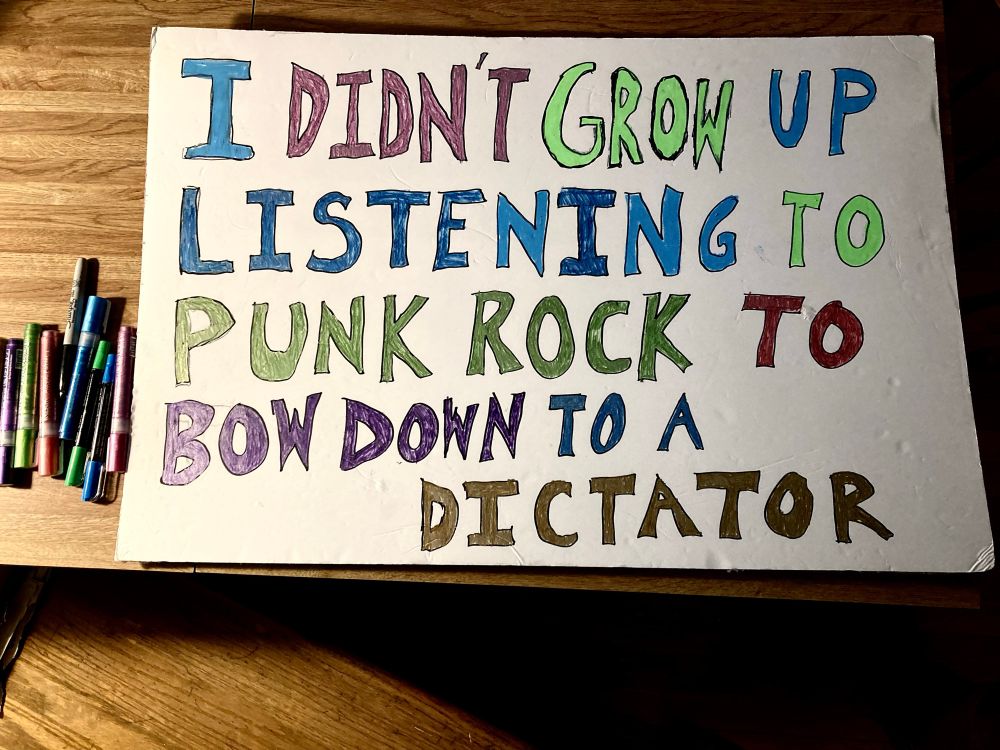 I DIDN'T GROW UP
LISTENING TO
PUNK ROCK TO
BOW DOWN TO A
DICTATOR